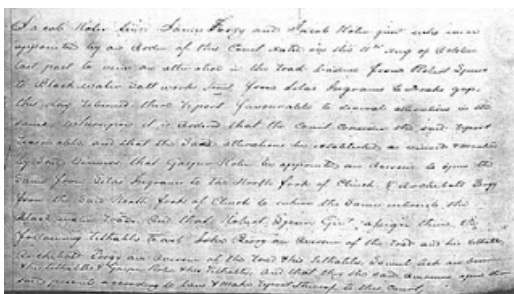 Jacob Koher Senr James Forgy and Jacob Koher Junr who were
appointed by an Order of this Court dated in the 11th day of October
last past to view an alteration in the road leading from Robert
to Black water Salt works from Silas Ingrams to gap
this day returned their report favourable to several alterations in the
same whereupon it is Ordered that the Court consider the said report
reasonable and that the said alterations be established as viewed & marked
by said Viewers that Gasper Koher be appointed an overseer to open the
same from Silas Ingrams to the North fork of Clinch & Archibald
from the said North fork of Clinch to where the same intersects the
Black water road. And that Robert Gent. assign them the
following tithables to wit John an overseer of the road and his tithables
Archibald an overseer of the road & his tithables, Samuel
& his tithables & Gasper Koher & his tithables, And that they the said overseers open the
said present according to Law & make report thereof to this Court